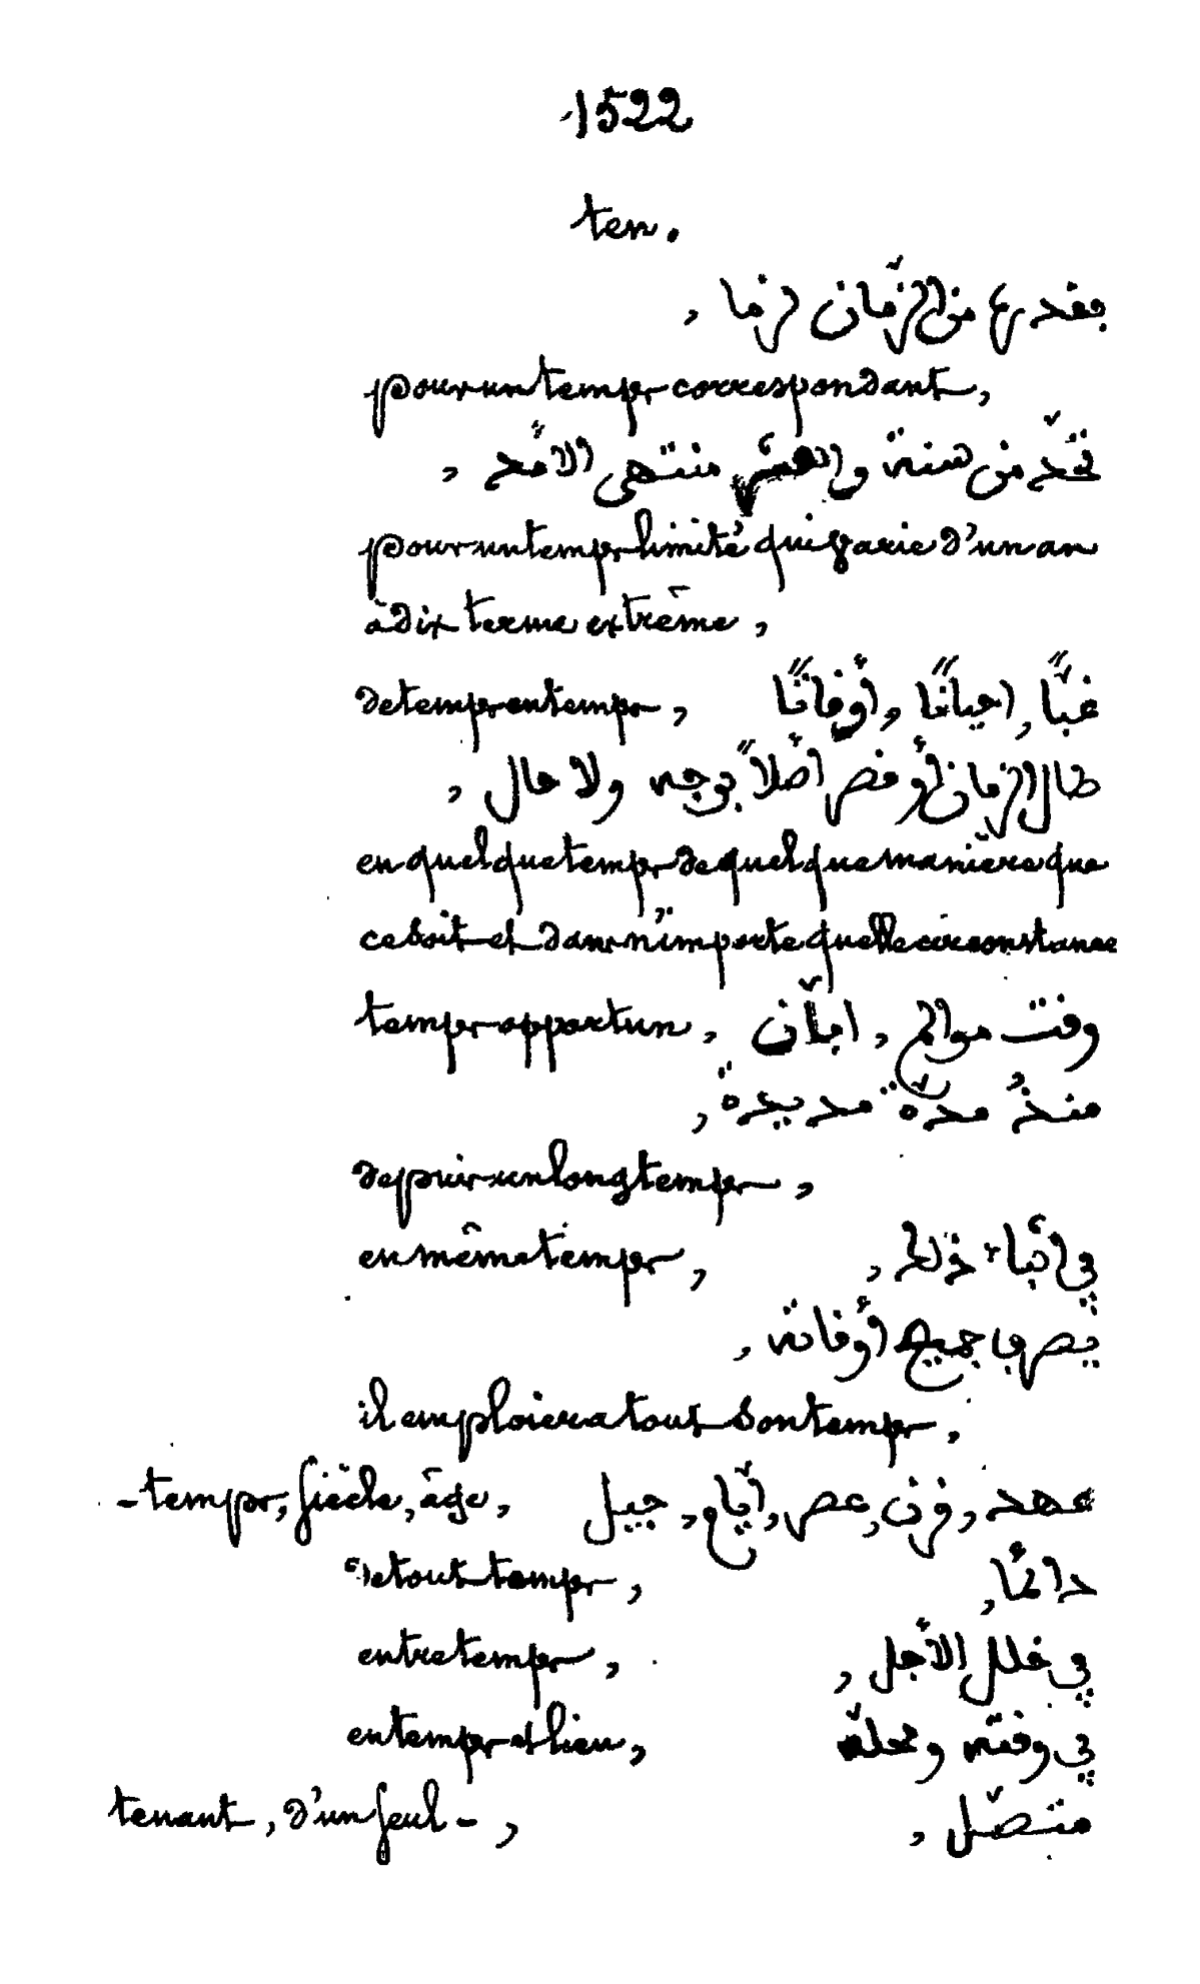 1522
ten.
بقدرها من الزّمان لزما ,
pour un temps correspondant,
تحّد من سنة والعشر منتهى الأمد ,
pour un temps limité qui varie d'un an
à dix terme extrême,
de temps en temps, غبًّا, احيانًا, أوقاتًا
طال الزمان أو قصر أصلاً بوجه ولا حال ,
en quelque temps de quelque manière que
ce soit et dans n'importe quelle circonstance
temps opportun, وقت موالم , ابّان
منذُ مدّة مديدة ,
depuis un long temps,
en même temps, في اثناء ذلك ,
يصرف جميع أوقاته ,
il emploiera tout son temps,
- temps, siècle, âge, عهد, قرن, عصر, أيّام, جيل
de tout temps, دائمًا,
entretemps, في خلل الأجل ,
en temps et lieu, في وقته ومحلّه
tenant, d'un seul -, متّصل ,